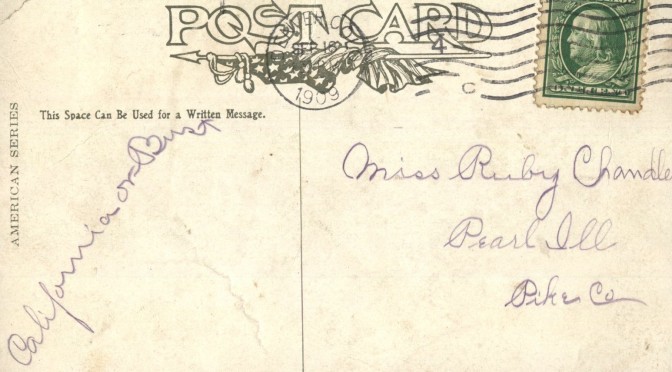 POST CARD
SEP 15
4
1909
C
AMERICAN SERIES
This Space Can Be Used for a Written Message.
California or Bust
Miss Ruby Chandle
Pearl Ill
Pike Co